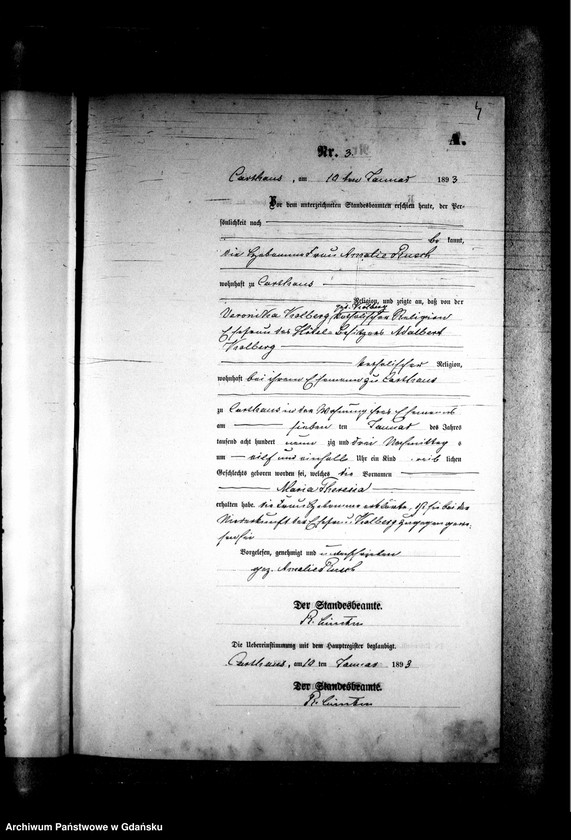 4
A.
Nr. 3.
Carthaus, am 10 ten Januar 1893
Vor dem unterzeichneten Standesbeamten erschien heute, der Per-
sönlichkeit nach
be kannt,
die Hebamme Frau Amalie Rusch
wohnhaft zu Carthaus
Religion, und zeigte an, daß von der
Veronika Kolberg katholischer Religion
Ehefrau des Hôtel-Besitzers Adalbert
Kolberg
katholischer Religion,
wohnhaft bei ihrem Ehemanne zu Carthaus
zu Carthaus in der Wohnung ihres Ehemannes
am sieben ten Januar des Jahres
tausend acht hundert neun zig und drei Nachmittag s
um elf und einhalb Uhr ein Kind weib lichen
Geschlechts geboren worden sei, welches die Vornamen
Maria Theresia
erhalten habe. Die Frau Hebamme erklärte, daß sie bei der
Niederkunft der Ehefrau Kolberg zugegen gewe-
sen sei
Vorgelesen, genehmigt und unterschrieben
gez. Amalie Rusch
Der Standesbeamte.
Die Uebereinstimmung mit dem Hauptregister beglaubigt.
Carthaus, am 10 ten Januar 1893
Der Standesbeamte.
Archiwum Państwowe w Gdańsku